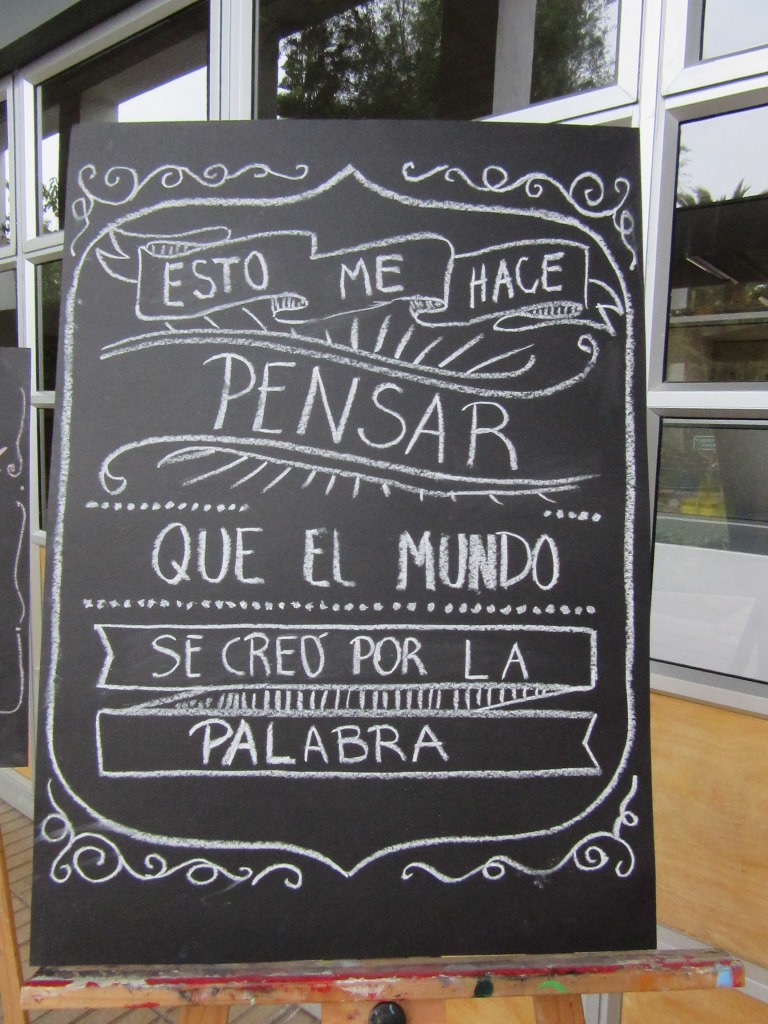 ESTO ME HACE
PENSAR
QUE EL MUNDO
SE CREÓ POR LA
PALABRA